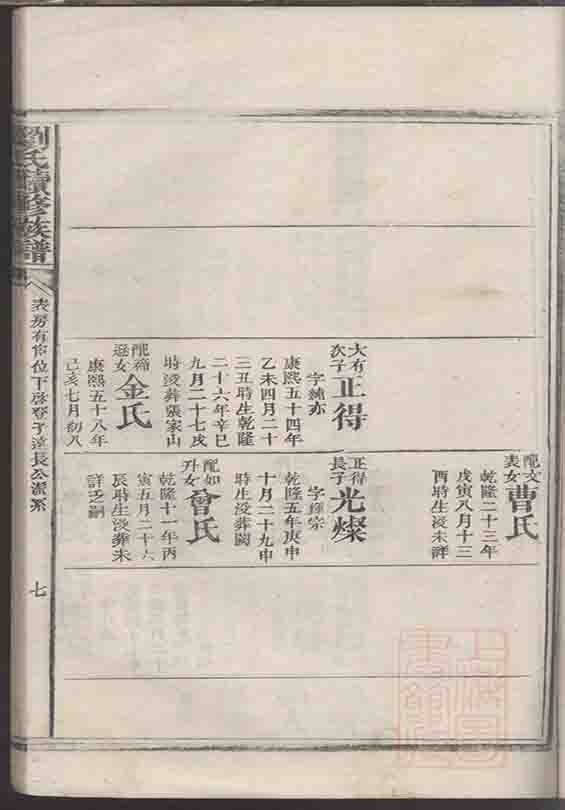 大有次子正得
字純亦
康熙五十四年
乙未四月二十
三丑時生乾隆
二十六年辛巳
九月二十七戌
時沒葬張家山
配女金氏
康熙五十八年
己亥七月初八
配文表女曹氏
乾隆二十三年
戊寅八月十三
酉時生沒未詳
正得長子光燦
字宗
乾隆五年庚申
十月二十九申
時生沒葬闕
配如升女曾氏
乾隆十一年丙
寅五月二十六
辰時生沒葬未
詳乏嗣
劉氏續修族譜
表房有位下啓登子達長公潔系
七
上海圖書館藏